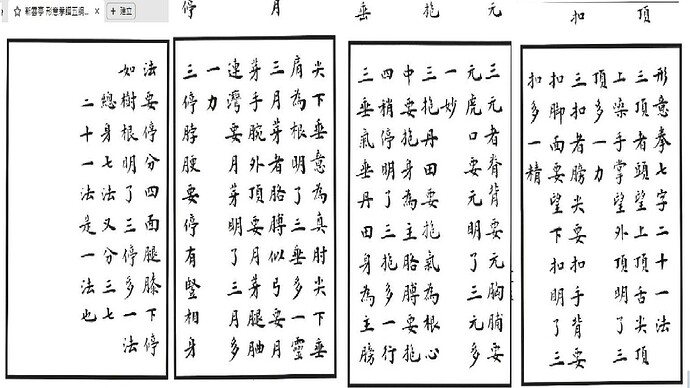 新雲亭 形意拳經五綱...
建立
頂
扣
形意拳七字二十一法
三頂者頭望上頂舌尖頂
上染手掌望外頂明了三
頂多一力
三扣者膀尖要扣手背要
扣脚面要望下扣明了三
扣多一精
元
抱
垂
三元者脊背要元胸脯要
元虎口要元明了三元多
一妙
三抱丹田要抱氣為根心
中要抱身為主胳膊要抱
四梢停明了三抱多一行
三垂氣垂丹田身為主膀
月
停
尖下垂意為真肘尖下垂
肩為根明了三垂多一靈
三月芽者胳膊似弓要月
芽手腕外頂要月芽腿
連灣要月芽明了三月多
一力
三停脖腰要停有豎相身
法要停分四面腿膝下停
如樹根明了三停多一法
總身七法又分三七
二十一法是一法也